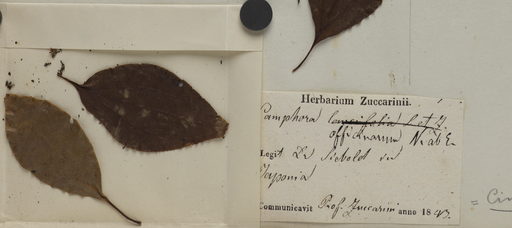 Herbarium Zuccarinii.
Camphora
officinarum N. ab E.
Legit Dr Siebold in
Japonia
Communicavit Prof. Zuccarini anno 1843.
= Cin